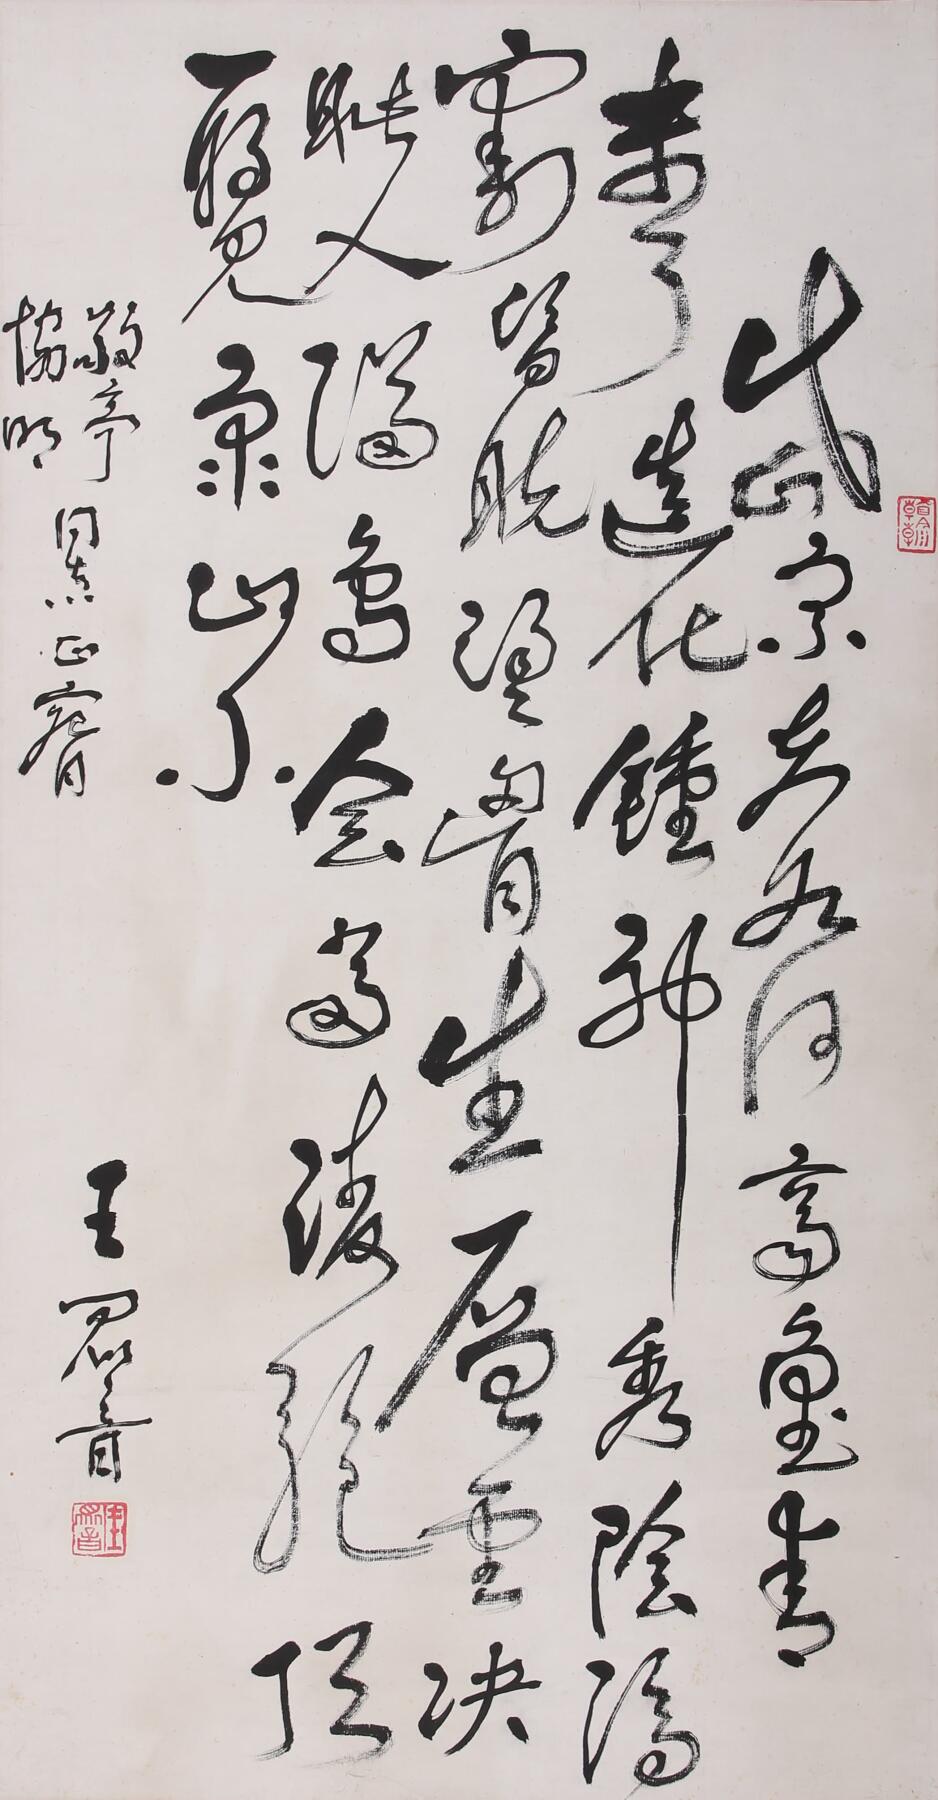 岱宗夫如何齊魯青
未了造化鍾神秀陰陽
割昏曉盪胷生層雲決
眥入歸鳥會當凌絕頂
一覽眾山小
敬亭
協明
同志正腕
王眾音